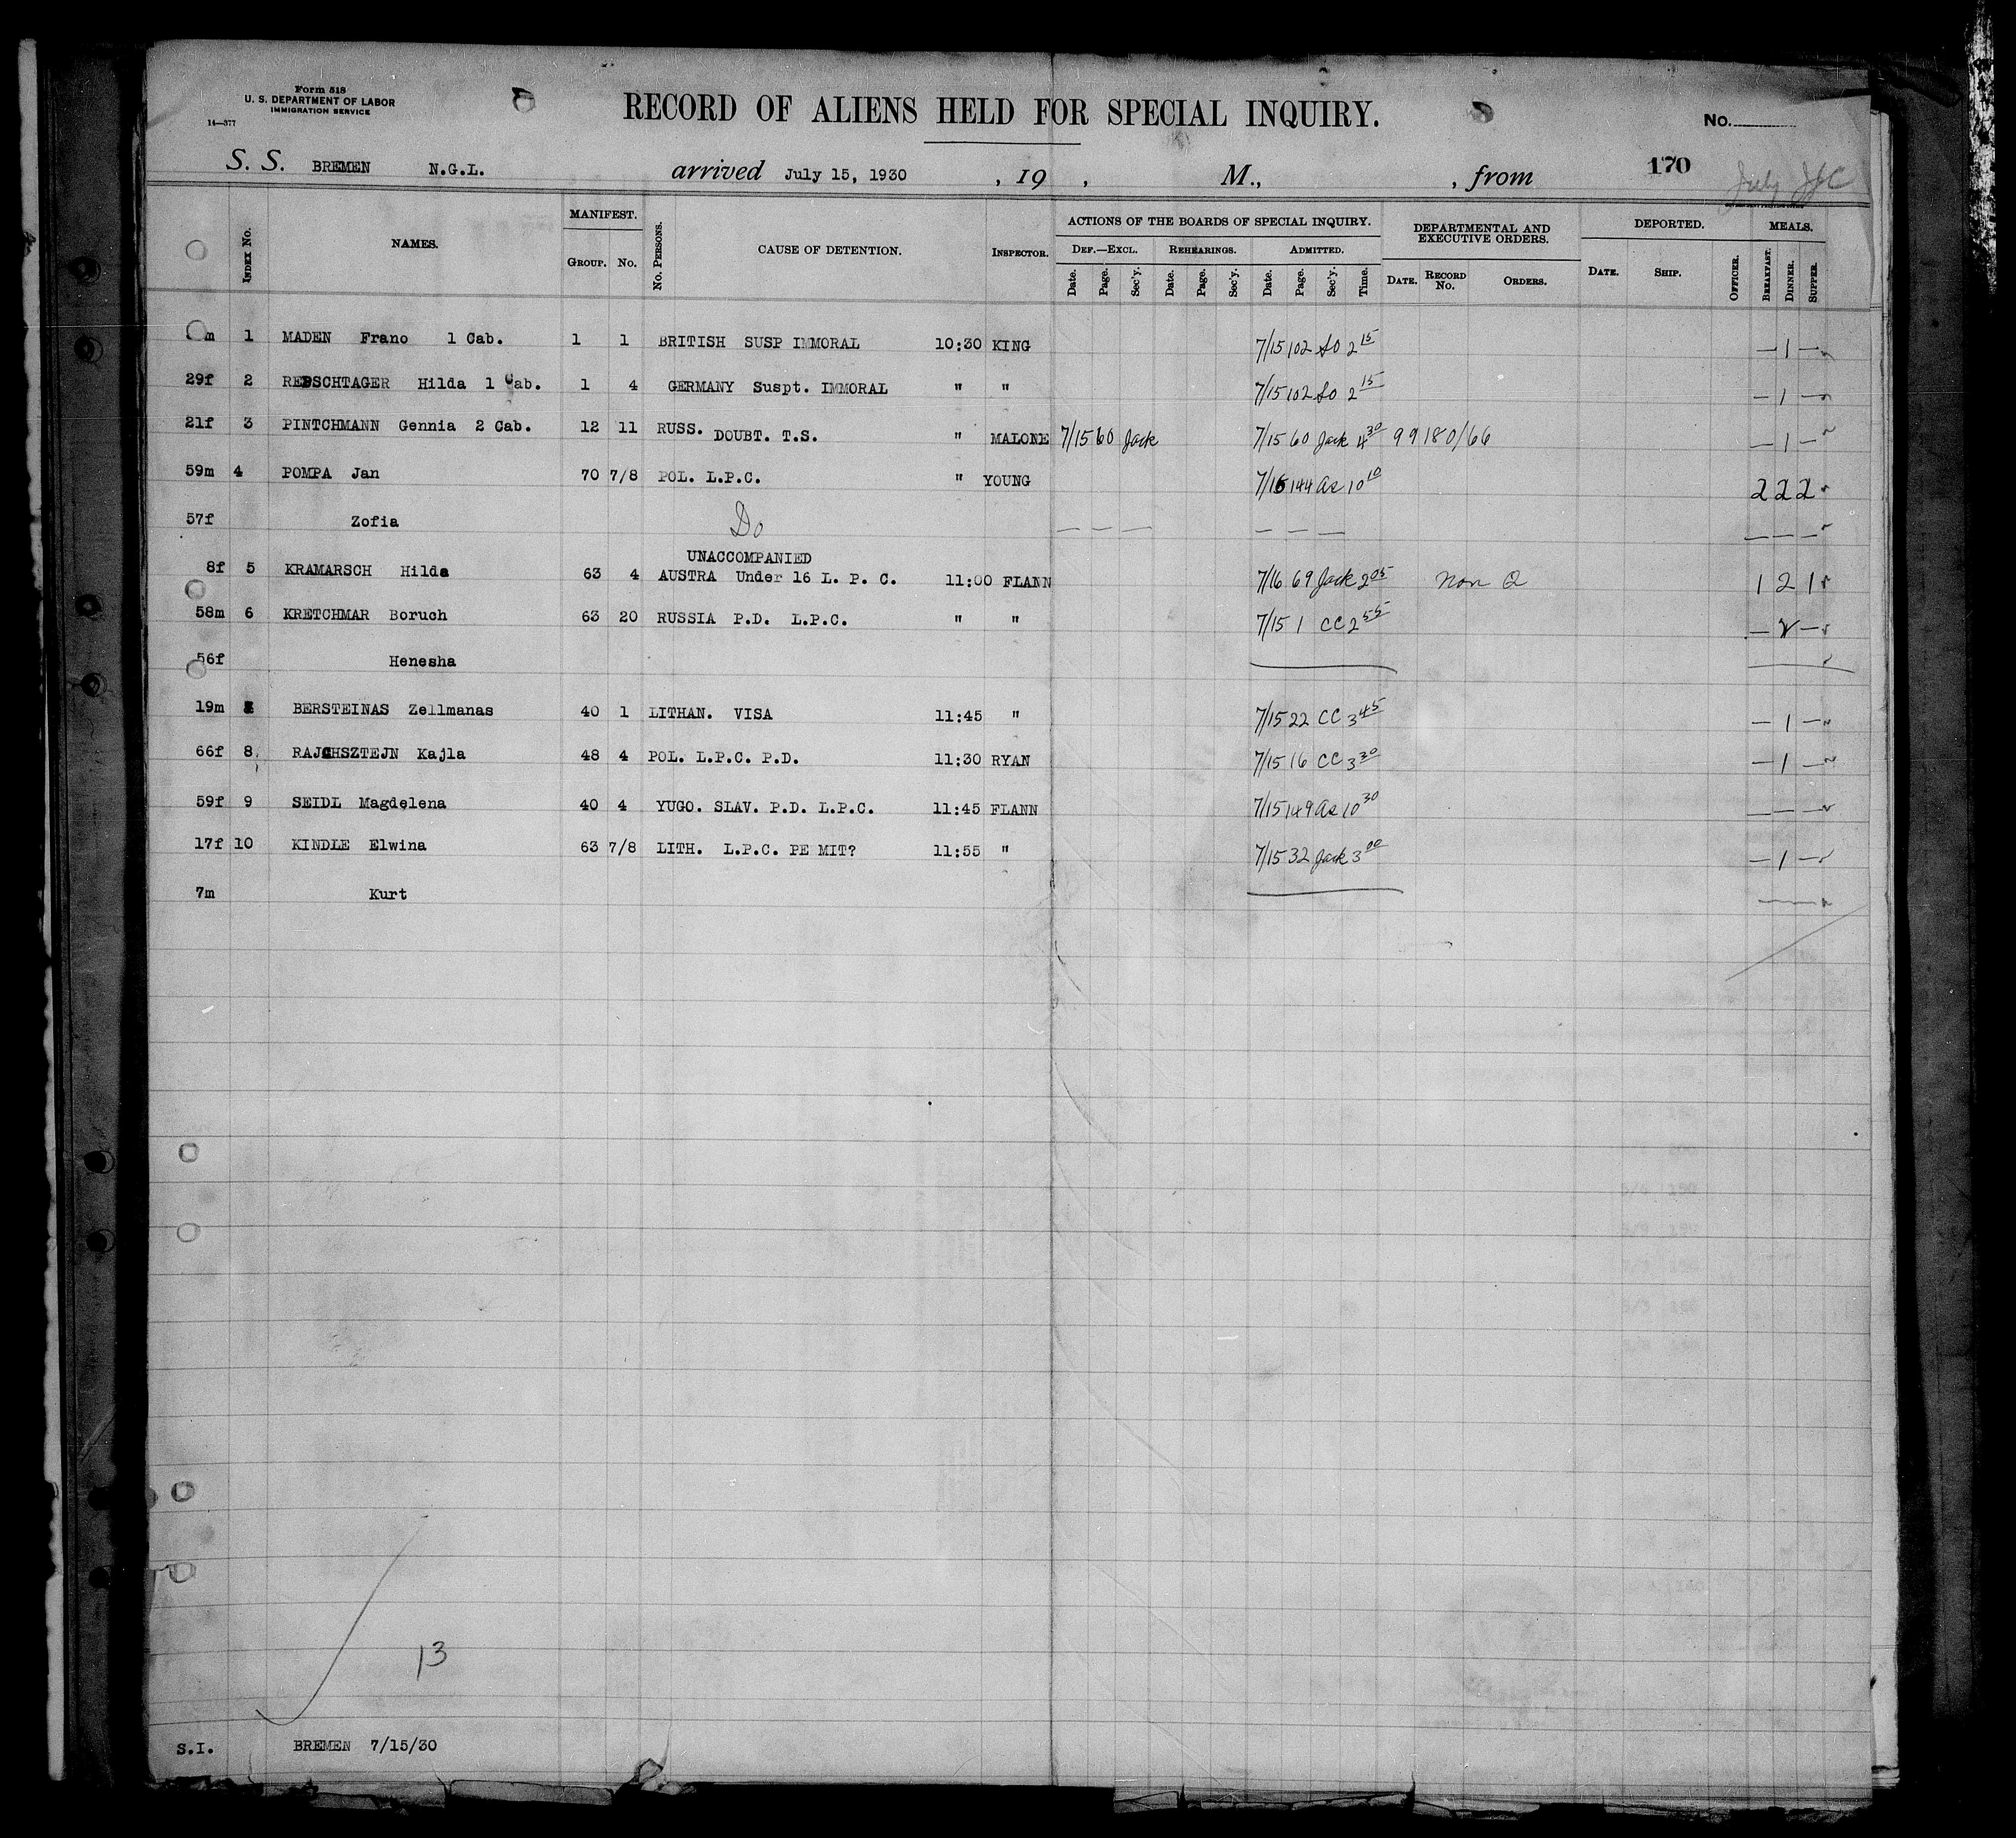 Form 518
U. S. DEPARTMENT OF LABOR
IMMIGRATION SERVICE
14—377
RECORD OF ALIENS HELD FOR SPECIAL INQUIRY.
No.
S. S. BREMEN N.G.L. arrived July 15, 1930 , 19 , M., , from 170
July
INDEX No. NAMES. MANIFEST. GROUP. No. No. PERSONS. CAUSE OF DETENTION. INSPECTOR. ACTIONS OF THE BOARDS OF SPECIAL INQUIRY. DEF.—EXCL. Date. Page. Sec'y. REHEARINGS. Date. Page. Sec'y. ADMITTED. Date. Page. Sec'y. Time. DEPARTMENTAL AND EXECUTIVE ORDERS. DATE. RECORD No. ORDERS. DEPORTED. DATE. SHIP. OFFICER. MEALS. BREAKFAST. DINNER. SUPPER.
m 1 MADEN Frano 1 Cab. 1 1 BRITISH SUSP IMMORAL 10:30 KING 7/15 102 SO 2 15 — 1 —
29f 2 REDSCHTAGER Hilda 1 Cab. 1 4 GERMANY Suspt. IMMORAL " " 7/15 102 SO 2 15 — 1 —
21f 3 PINTCHMANN Gennia 2 Cab. 12 11 RUSS. DOUBT. T.S. " MALONE 7/15 60 Jack 7/15 60 Jack 4 30 99180/66 — 1 —
59m 4 POMPA Jan 70 7/8 POL. L.P.C. " YOUNG 7/16 144 Ae 10 10 2 2 2
57f Zofia Do — — — — — — — — —
UNACCOMPANIED
8f 5 KRAMARSCH Hilda 63 4 AUSTRA Under 16 L. P. C. 11:00 FLANN 7/16 69 Jack 2 05 Non Q 1 2 1
58m 6 KRETCHMAR Boruch 63 20 RUSSIA P.D. L.P.C. " " 7/15 1 CC 2 55 — 2 —
56f Henesha
19m BERSTEINAS Zellmanas 40 1 LITHAN. VISA 11:45 " 7/15 22 CC 3 45 — 1 —
66f 8 RAJCHSZTEJN Kajla 48 4 POL. L.P.C. P.D. 11:30 RYAN 7/15 16 CC 3 30 — 1 —
59f 9 SEIDL Magdelena 40 4 YUGO. SLAV. P.D. L.P.C. 11:45 FLANN 7/15 149 Ae 10 30 — — —
17f 10 KINDLE Elwina 63 7/8 LITH. L.P.C. PE MIT? 11:55 " 7/15 32 Jack 3 00 — 1 —
7m Kurt
13
S.I. BREMEN 7/15/30